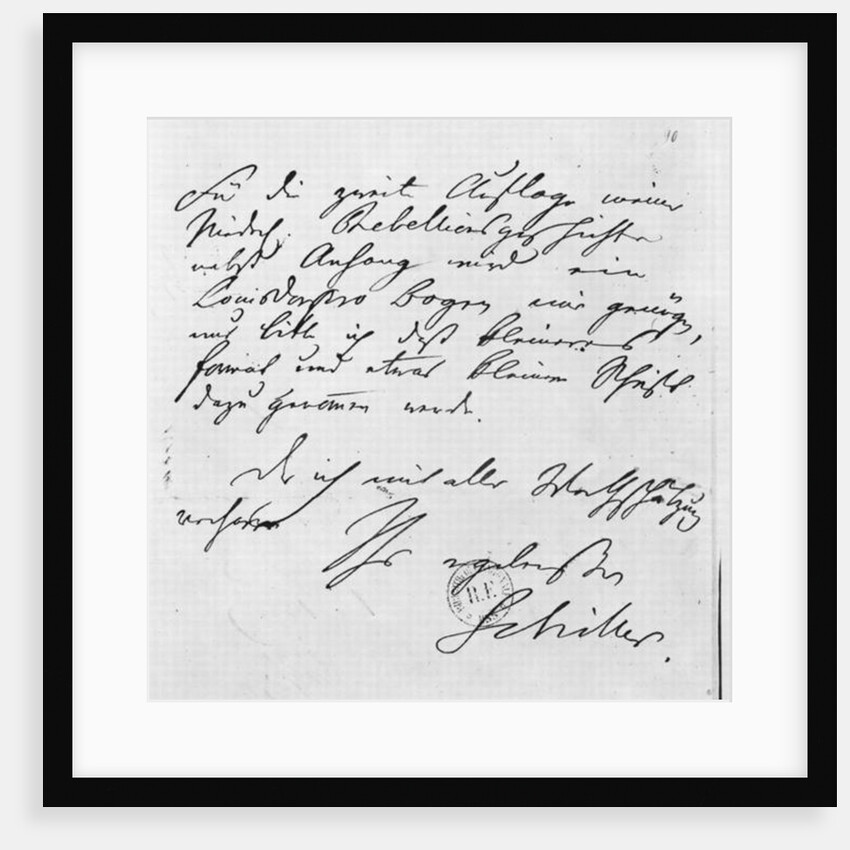 10
Für die zweite Auflage meiner
Niederl. Rebellionsgeschichte
nebst Anhang wird ein
Louisdor pro Bogen mir genügen,
nur bitte ich daß kleineres
format und etwas kleinere Schrift
dazu genom̄en werde.
Der ich mit aller Werthschätzung
verharre
Ihr ergebenster
R.F.
Schiller.